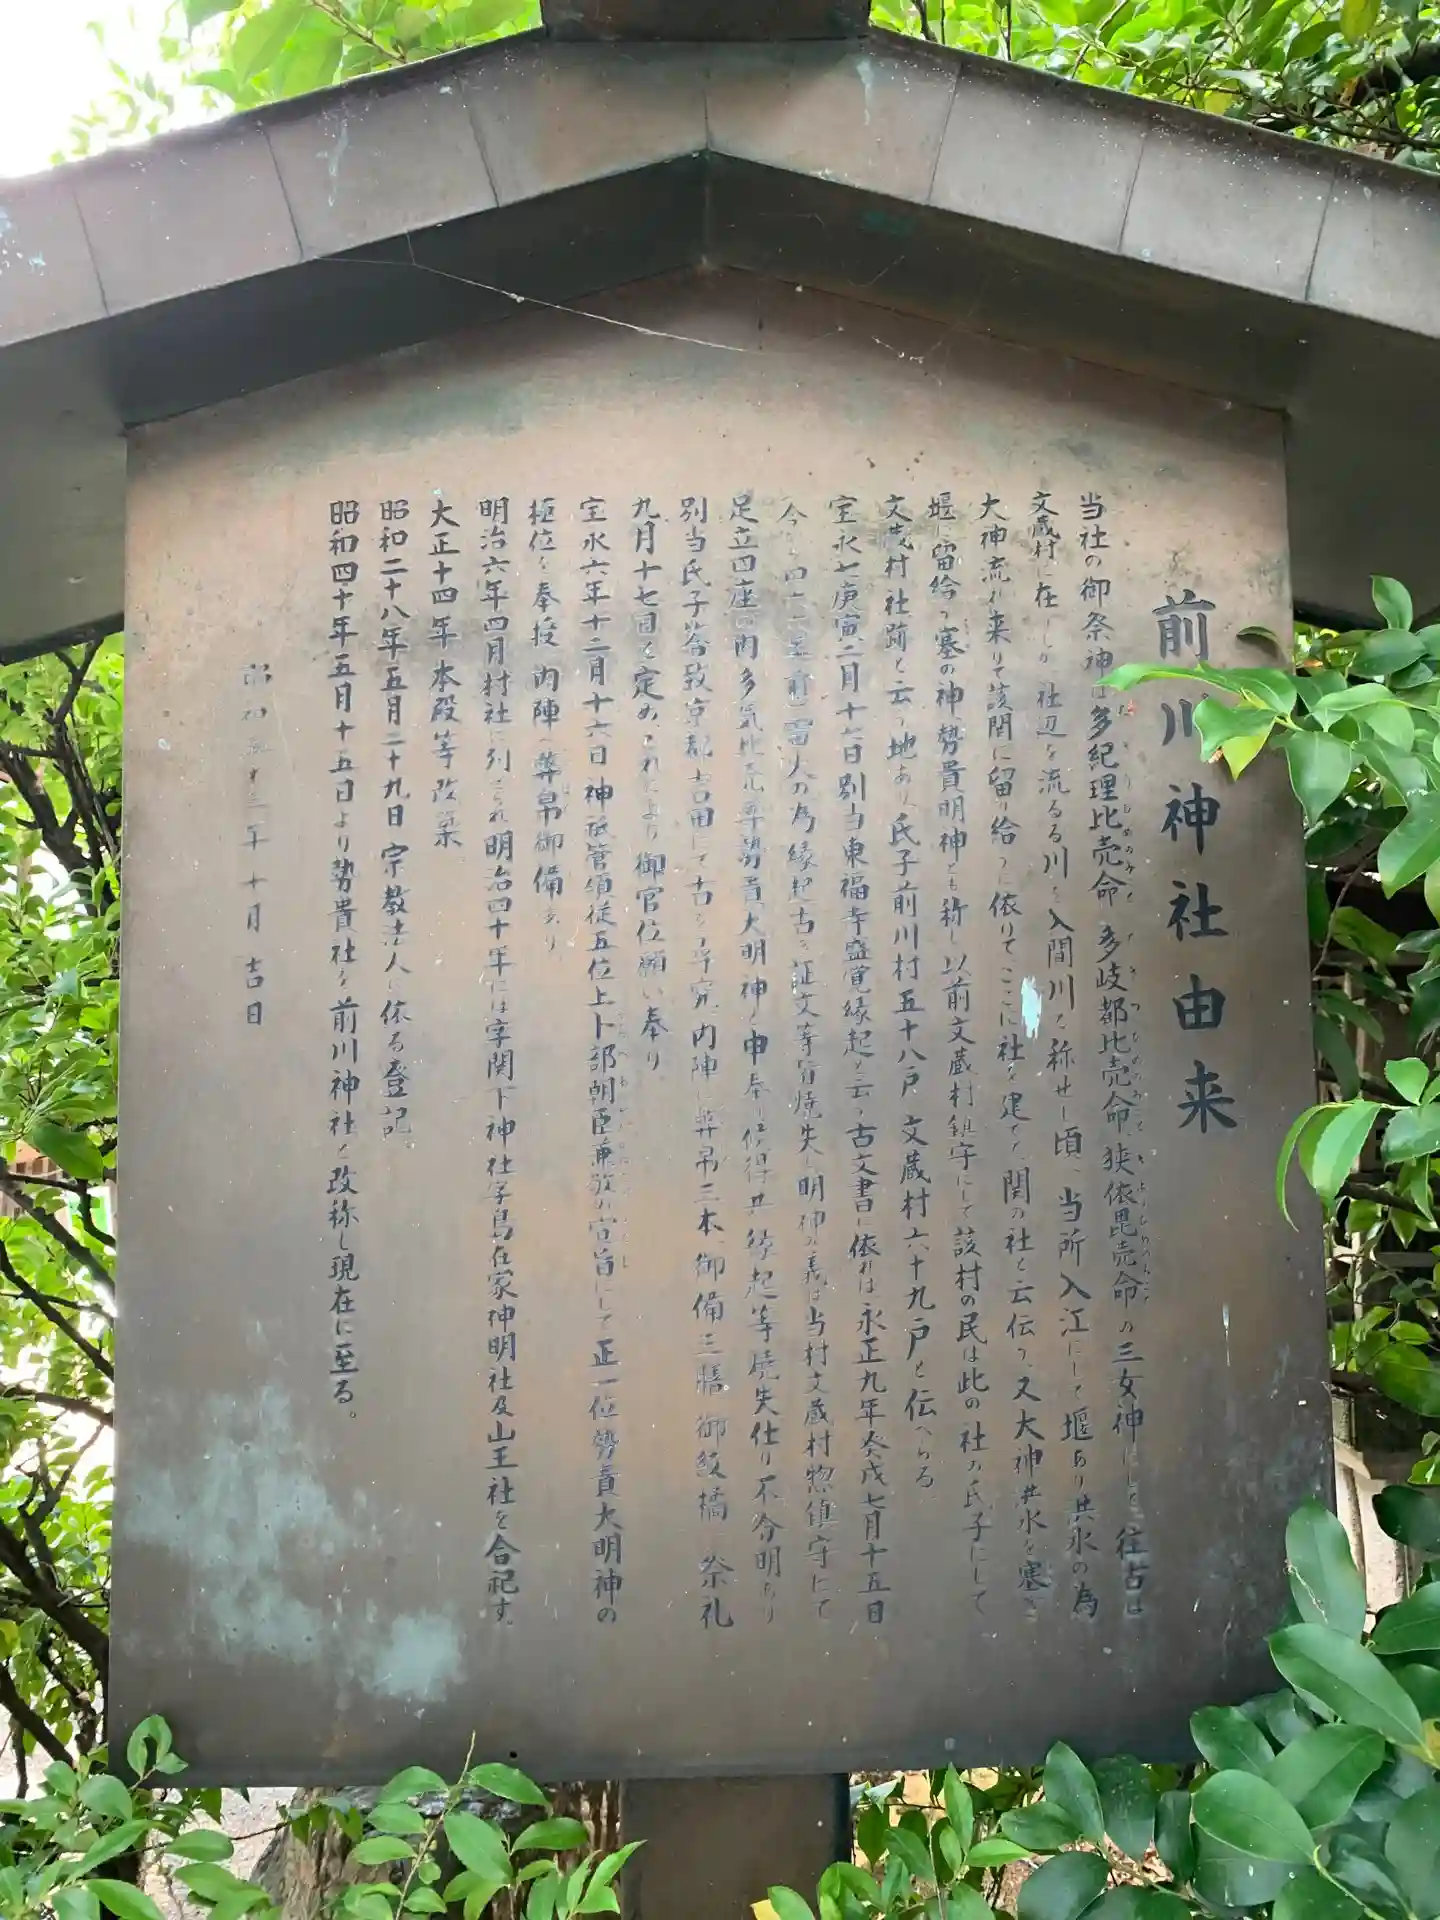 前川神社由来
当社の御祭神は多紀理比売命 多岐都比売命 狭依毘売命の三女神にして 往古は
文蔵村に在りしが社辺を流るる川を入間川と称せし頃、当所入江にして堰あり洪水の為
大神流れ来りて該関に留り給うに依りてここに社を建て、関の社と云伝う、又大神洪水を塞ぎ
堰に留給う塞の神、勢貴明神とも称し以前文蔵村鎮守にして該村の民は此の社の氏子にして
文蔵村に社跡と云う地あり、氏子前川村五十八戸、文蔵村六十九戸と伝へらる
宝永七庚寅二月十七日別当東福寺盛覚縁起と云う古文書に依れば永正九年癸戌七月十五日
今 雷火の為縁起古き証文等皆焼失し明神の義は当村文蔵村惣鎮守にて
足立四座の内多気比売 勢貴大明神と申奉り候得共縁起等焼失仕り不分明あり
別当氏子 京都吉田にて古を尋究、内陣に幣帛三本、御備三膳 御紋橘 祭礼
九月十七日と定め、これにより御官位願い奉り
宝永六年十二月十六日神祇管領従五位上卜部朝臣兼敬の宣旨にして正一位勢貴大明神の
極位を奉授 内陣へ幣帛御備あり
明治六年四月村社に列せられ明治四十年には字関下神社字島在家神明社及山王社を合祀す。
大正十四年本殿等改築
昭和二十八年五月二十九日宗教法人に依る登記。
昭和四十年五月十五日より勢貴社を前川神社と改称し現在に至る。
昭和五十三年十月吉日